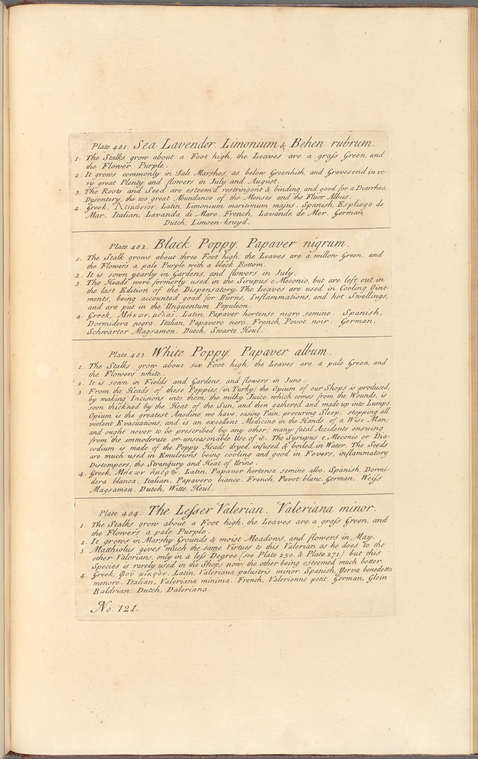 Plate 481. Sea Lavender. Limonium & Behen rubrum.
1. The Stalks grow about a Foot high, the Leaves are a grass Green, and
the Flower Purple.
2. It grows commonly in Salt Marshes, as below Greenhith, and Gravesend in ve-
ry great Plenty and flowers in July and August.
3. The Roots and Seed are esteem'd restringent & binding and good for a Diarrhea,
Dysentery, the too great Abundance of the Menses and the Fluor Albus.
4. Greek, Λειμώνιον. Latin, Limonium maritimum majus. Spanish, Espliego de
Mar. Italian, Lavanda di Mare. French, Lavande de Mer. German
Dutch, Limoen-kruyd.
Plate 482. Black Poppy. Papaver nigrum.
1. The Stalk grows about three Foot high, the Leaves are a willow Green, and
the Flowers a pale Purple with a black Bottom.
2. It is sown yearly in Gardens, and flowers in July.
3. The Heads were formerly used in the Syrupus e Meconio, but are left out in
the last Edition of the Dispensatory. The Leaves are used in Cooling Oint-
ments, being accounted good for Burns, Inflammations, and hot Swellings,
and are put in the Unguentum Populeon.
4. Greek, Μήκων μέλαι. Latin, Papaver hortense nigro semine. Spanish,
Dormidera negra. Italian, Papavero nero. French, Pavot noir. German,
Schwarter Magsamen. Dutch, Swarte Heul.
Plate 483. White Poppy. Papaver album.
1. The Stalks grow about six Foot high, the Leaves are a pale Green, and
the Flowers white.
2. It is sown in Fields and Gardens, and flowers in June.
3. From the Heads of these Poppies (in Turky) the Opium of our Shops is produced,
by making Incisions into them, the milky Juice which comes from the Wounds, is
soon thickned by the Heat of the Sun, and then gathered and made up into Lumps.
Opium is the greatest Anodine we have, easing Pain, procuring Sleep, stopping all
violent Evacuations, and is an excellent Medicine in the Hands of a Wise Man,
and ought never to be prescribed by any other; many fatal Accidents ensuing
from the immoderate or unseasonable Use of it. The Syrupus e Meconio or Dia-
codium is made of the Poppy Heads dryed, infused & boiled in Water. The Seeds
are much used in Emulsions being cooling and good in Fevers, inflammatory
Distempers, the Strangury and Heat of Urine.
4. Greek, Μήκων ἥμερος. Latin, Papaver hortense semine albo. Spanish, Dormi-
dera blanca. Italian, Papavero bianco. French, Pavot blanc. German, Weiss
Magsamen. Dutch, Witte Heul.
Plate 484. The Lesser Valerian. Valeriana minor.
1. The Stalks grow about a Foot high, the Leaves are a grass Green, and
the Flowers a pale Purple.
2. It grows in Marshy Grounds & moist Meadows, and flowers in May.
3. Matthiolus gives much the same Virtues to this Valerian as he does to the
other Valerians, only in a less Degree (see Plate 250. & Plate 271) but this
Species is rarely used in the Shops now, the other being esteemed much better.
4. Greek, Φοῦ μικρὸν. Latin, Valeriana palustris minor. Spanish, Yerva benedetta
menore. Italian, Valeriana minima. French, Valerienne petit. German, Glein
Baldrian. Dutch, Valeriana.
No. 121.